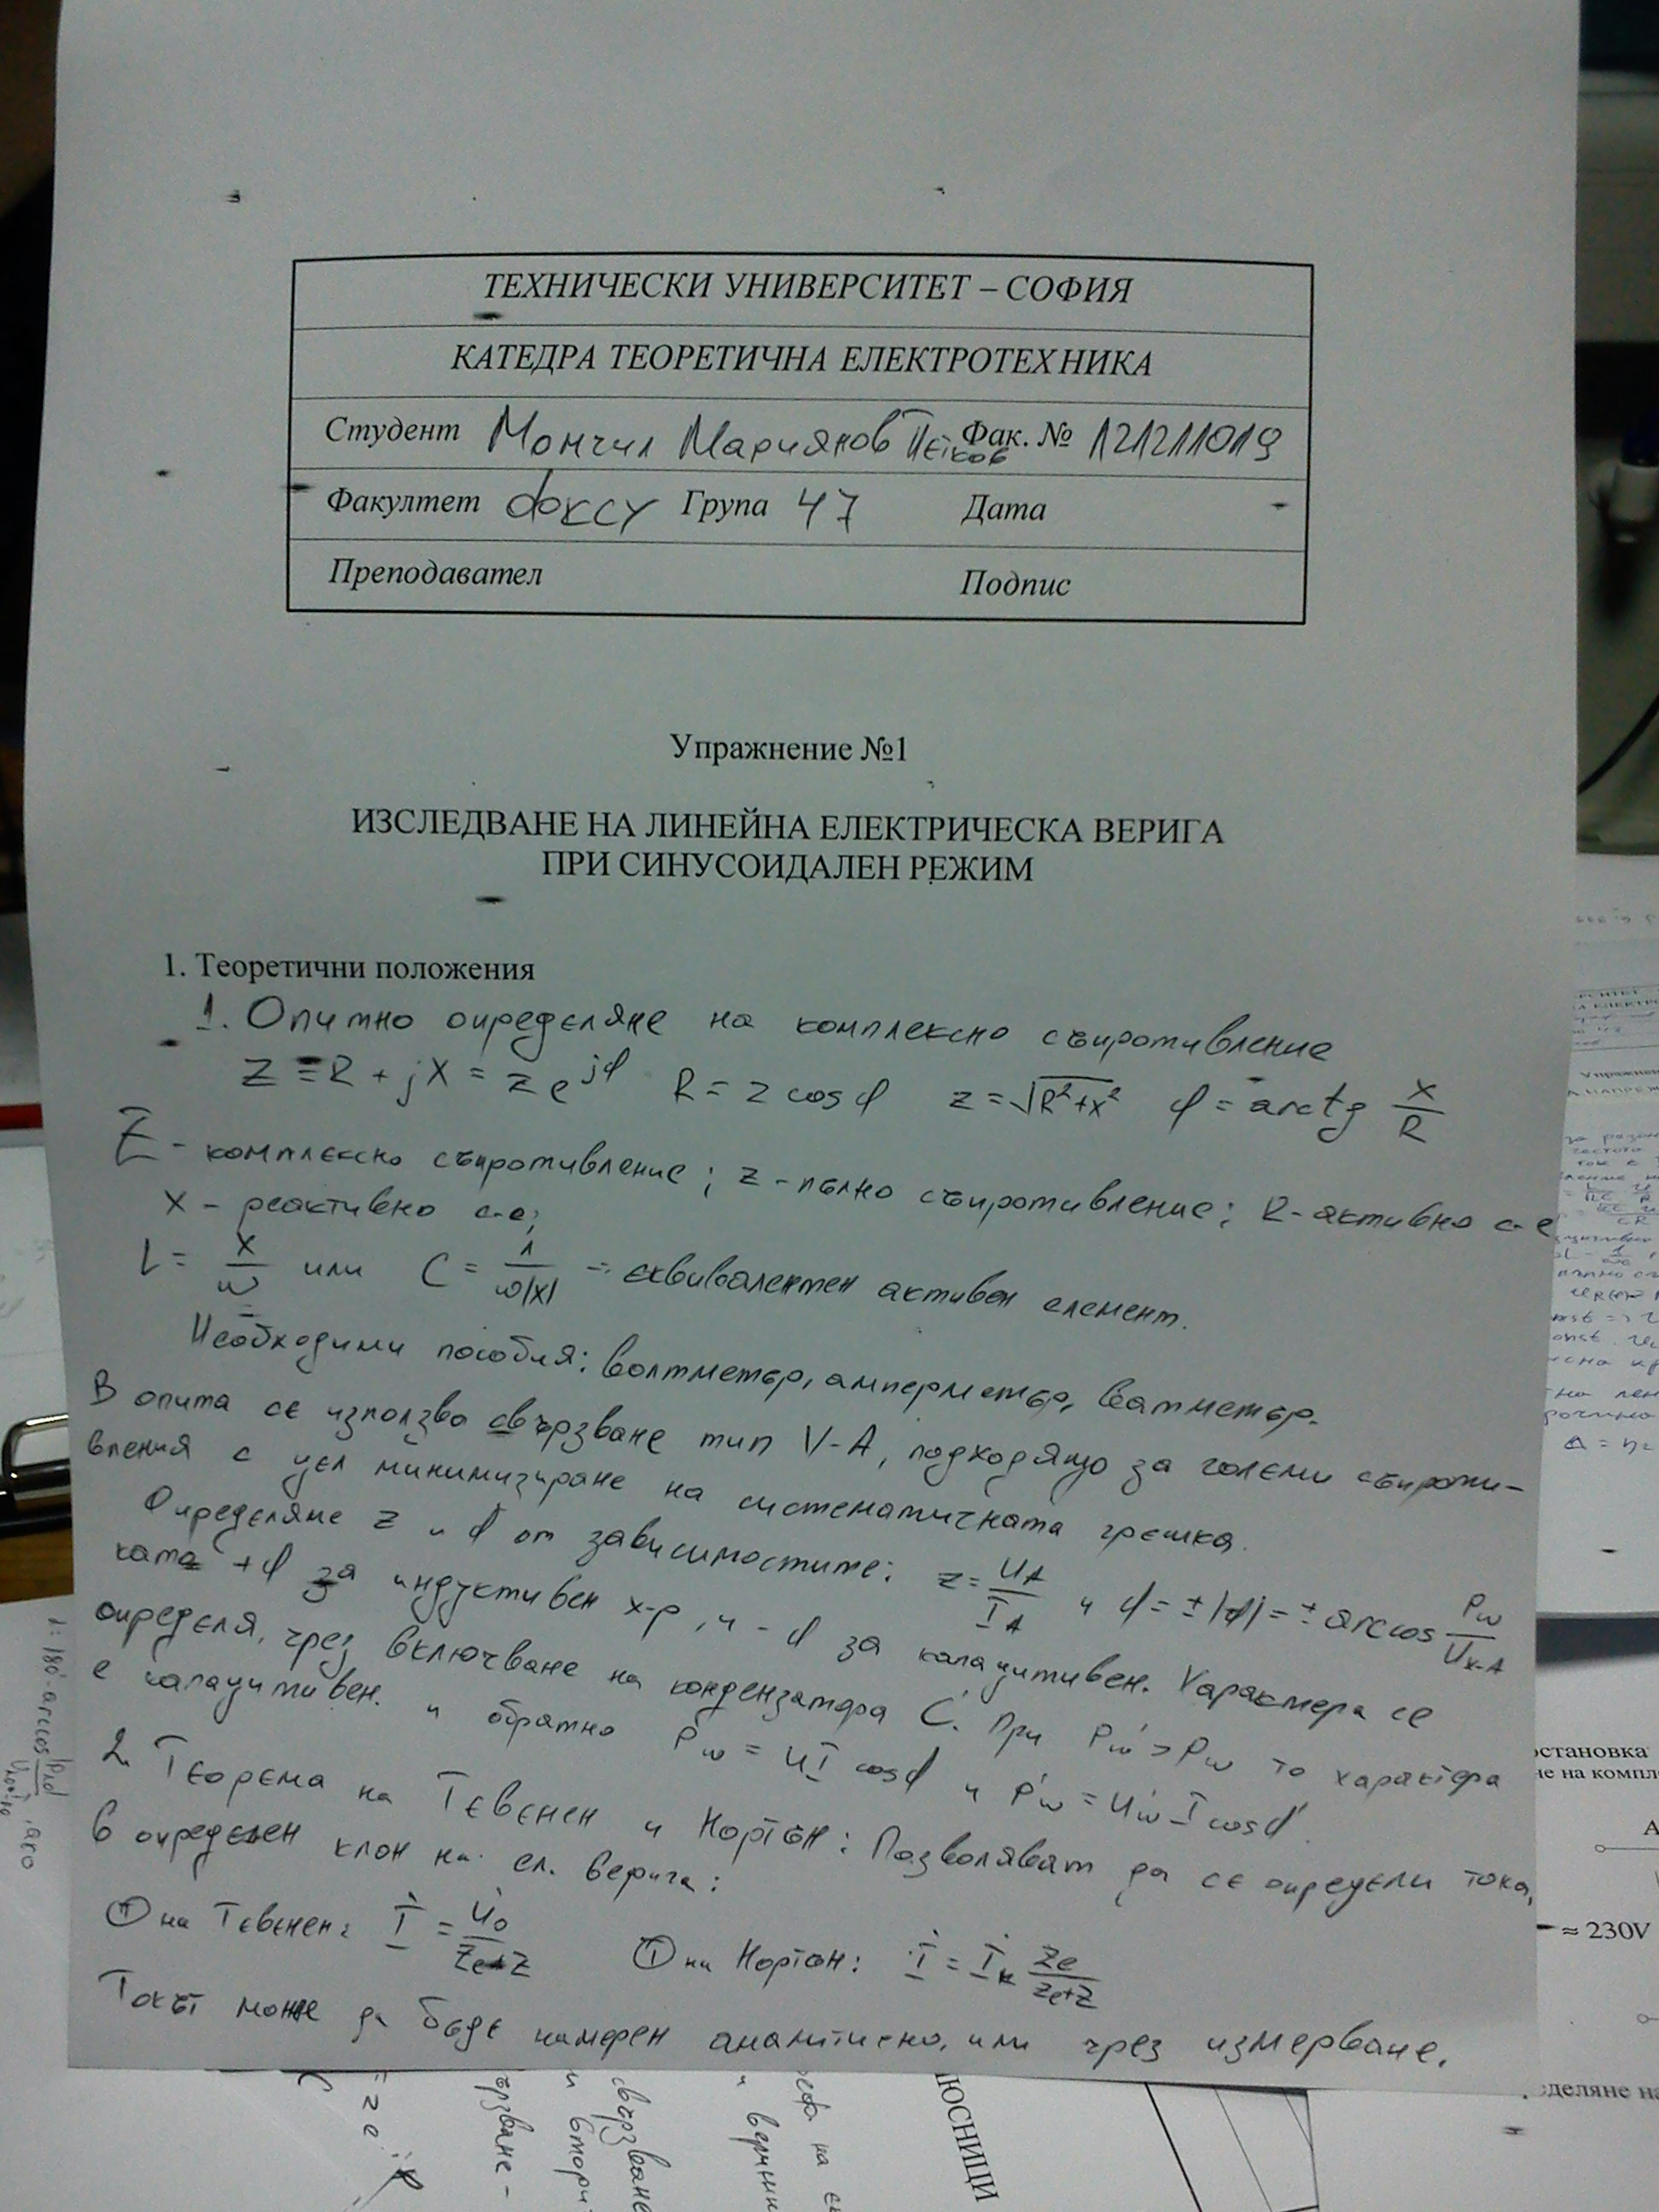 ТЕХНИЧЕСКИ УНИВЕРСИТЕТ – СОФИЯ
КАТЕДРА ТЕОРЕТИЧНА ЕЛЕКТРОТЕХНИКА
Студент Момчил Мариянов Петков Фак. № 121211019
Факултет ФКСУ Група 47 Дата
Преподавател Подпис
Упражнение №1
ИЗСЛЕДВАНЕ НА ЛИНЕЙНА ЕЛЕКТРИЧЕСКА ВЕРИГА
ПРИ СИНУСОИДАЛЕН РЕЖИМ
1. Теоретични положения
1. Опитно определяне на комплексно съпротивление
Z = R + jX = z e^jφ R = z cos φ z = √R²+x² φ = arctg X/R
Z - комплексно съпротивление; z - пълно съпротивление; R - активно с-е
X - реактивно с-е;
L = X/ω или C = 1/ω|X| - еквивалентен активен елемент.
Необходими пособия: волтметър, амперметър, ватметър.
В опита се използва свързване тип V-A, подходящо за големи съпроти-
вления с цел минимизиране на систематичната грешка.
Определяне z и φ от зависимостите: z = U_A/I_A и φ = ±|φ| = ± arccos P_w/U_x·A
като +φ за индуктивен х-р, и -φ за капацитивен. Характера се
определя, чрез включване на кондензатора C. При P'w > Pw то характера
е капацитивен. и обратно Pw = UI cos φ и P'w = U'w I cos φ'.
2. Теорема на Тевенен и Нортон: Позволяват да се определи тока,
в определен клон на ел. верига:
Ⓣ на Тевенен: İ = U̇o/Ze+Z Ⓣ на Нортон: İ = İк Ze/Ze+Z
Токът може да бъде намерен аналитично, или чрез измерване.
≈ 230V